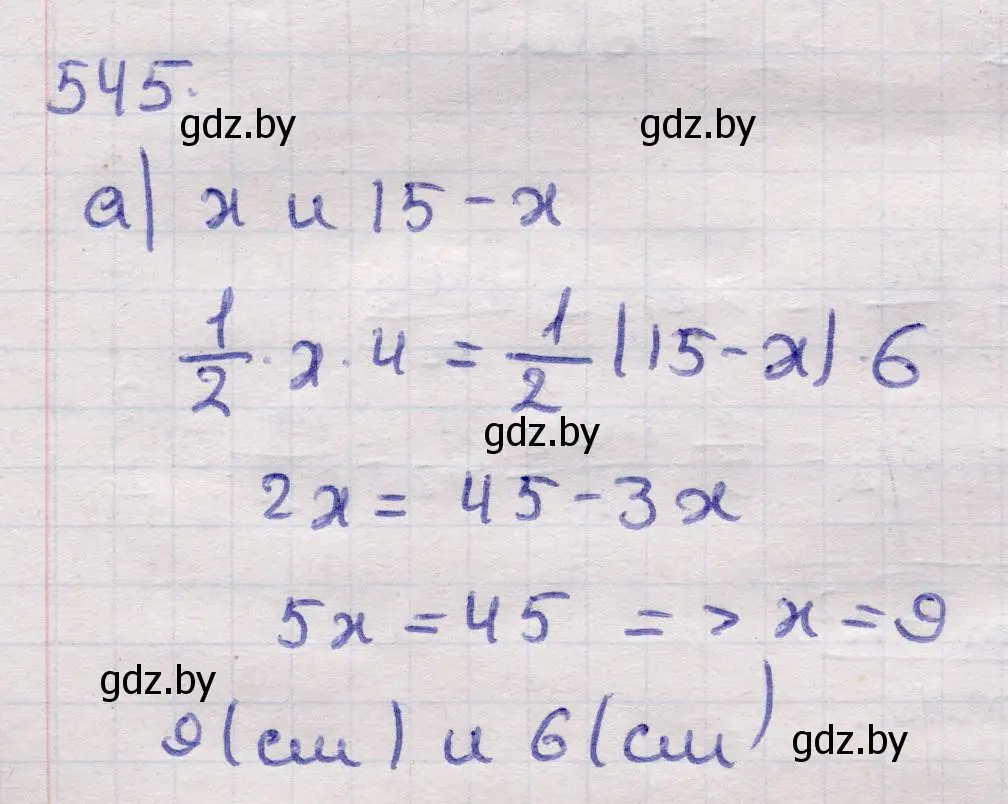 545.
gdz.by gdz.by
а) x и 15 - x
1/2 · x · 4 = 1/2 (15 - x) · 6
gdz.by
2x = 45 - 3x
5x = 45 => x = 9
gdz.by
9 (см) и 6 (см)
gdz.by